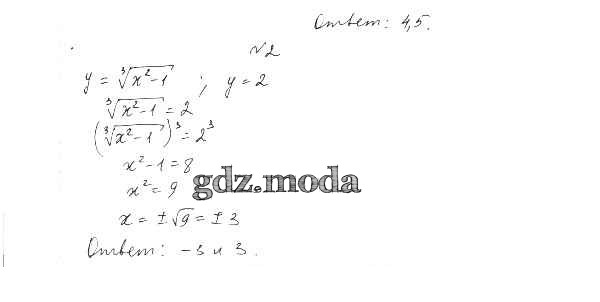 Ответ: 4,5.
№2
y = ∛(x²-1) ; y = 2
∛(x²-1) = 2
(∛(x²-1))³ = 2³
x²-1 = 8
x² = 9
gdz.moda
x = ±√9 = ±3
Ответ: -3 и 3.